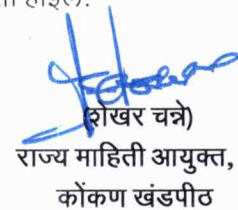 होईल.
(शेखर चन्ने)
राज्य माहिती आयुक्त,
कोंकण खंडपीठ